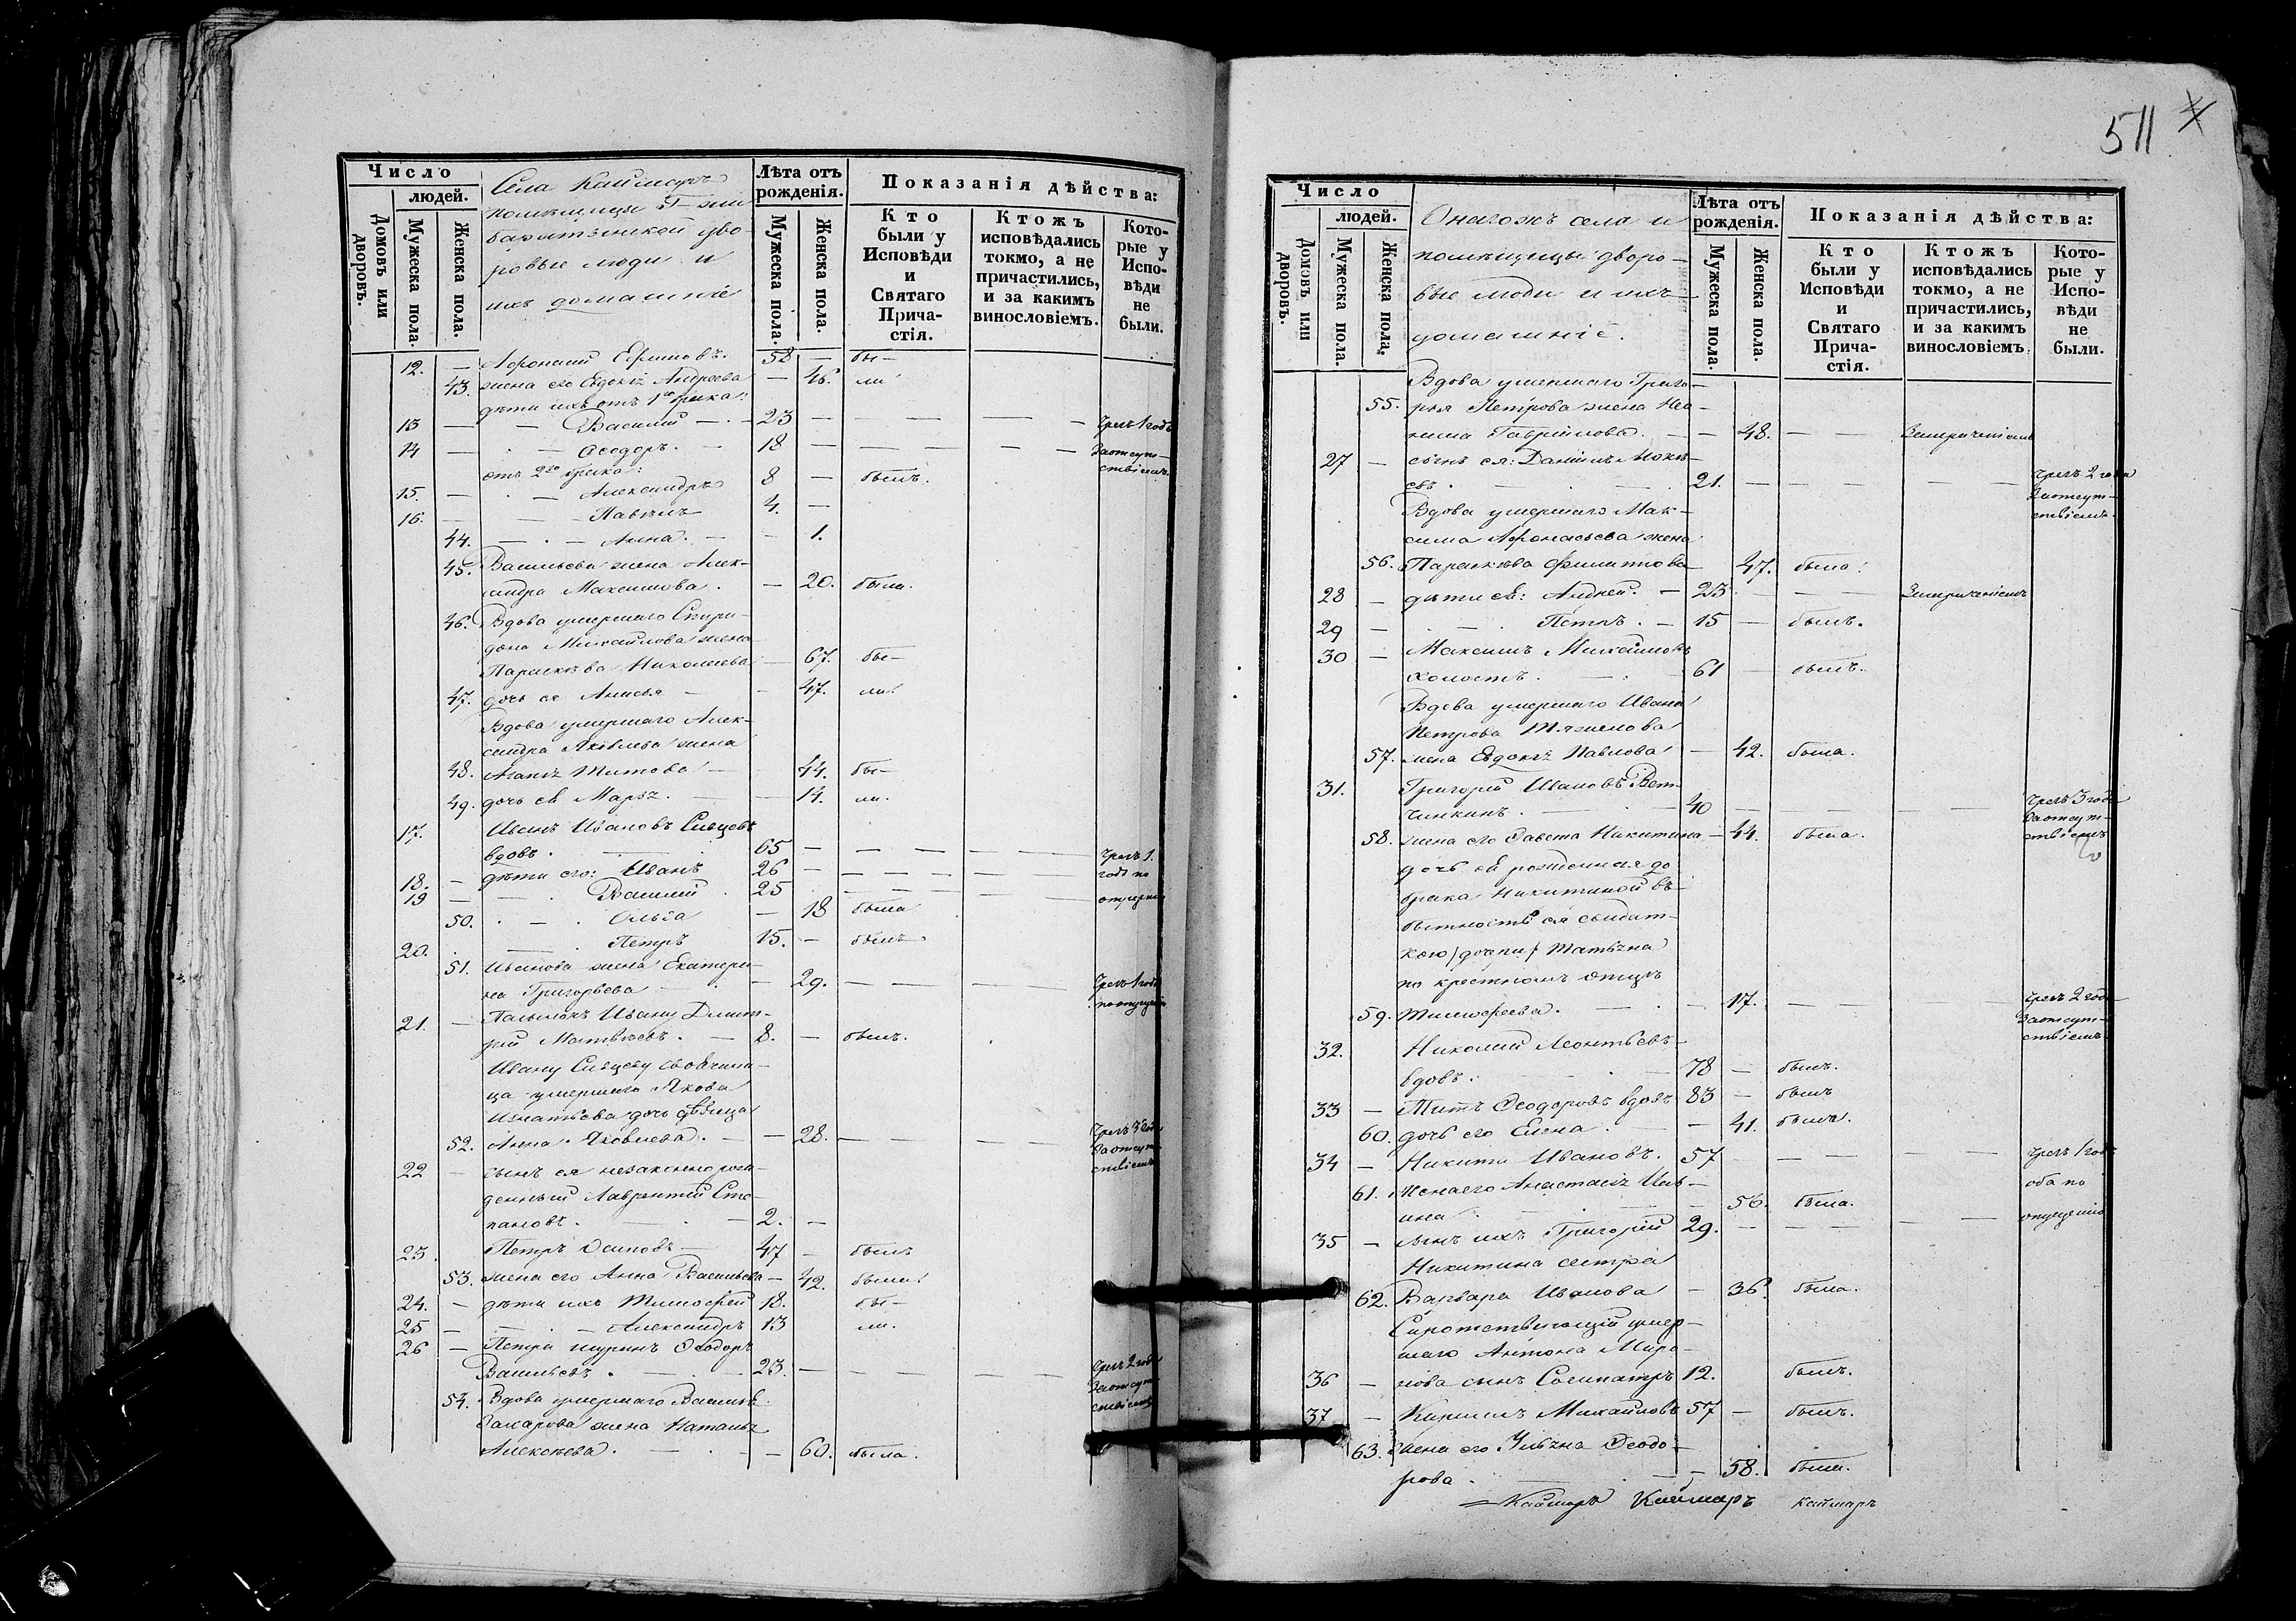 Число
людей.
Домовъ или дворовъ.
Мужеска пола.
Женска пола.
Села Каймаръ
помѣщицы Г-жи
Баратынской дво-
ровые люди и
ихъ домашніе
Лѣта отъ рожденія.
Мужеска пола.
Женска пола.
Показанія дѣйства:
Кто были у Исповѣди и Святаго Прича-стія.
Ктожъ исповѣдались токмо, а не причастились, и за какимъ винословіемъ.
Кото-рые у Испо-вѣди не были.
12. — Афонасій Ефимовъ. 58 — бы-
43. жена его Евдокія Андреева — 46. ли
дѣти ихъ отъ 1го брака:
13 — — Василий — 23 — — — — чрезъ 1 годъ
14 — — Ѳеодоръ. — 18 — — — — За отсут-
ствіемъ.
отъ 2го брака:
15. — — Александръ 8 — былъ.
16. — — Павелъ 4. —
44. — — Анна. — — 1.
45. Васильева жена Алек-
сандра Максимова. — 20. была.
46. Вдова умершаго Спири-
дона Михайлова жена
Параскѣва Николаева — 67. бы-
47. дочь ея Анисья — — 47. ли.
Вдова умершаго Алек-
сандра Яковлева жена
48. Агапія Титова — 44. бы-
49. дочь ея Марія. — — 14. ли.
17. Иванъ Ивановъ Сивцовъ
вдовъ. — 65 — — — — чрезъ 1.
18. — дѣти его: Иванъ 26 — — — — годъ по
19 — — Василий 25 — — — опущенію
50. — Ольга — 18 была
20. — Петръ 15. — былъ
51. Иванова жена Екатери-
на Григорьева — — 29. — — — чрезъ 1 годъ
по опущенію
21. — Пасынокъ Ивану Дмит-
рій Матвѣевъ. — 8. — былъ.
Ивану Сивцову свояченни-
ца умершаго Якова
Игнатьева дочь дѣвица
52. Анна Яковлева. — — 28. — — — чрезъ 3 года
За отсут-
ствіемъ
22 — сынъ ея незаконнорож-
денный Лаврентій Сте-
пановъ. — 2. —
23. Петръ Осиповъ — 47 — былъ
53. жена его Анна Васильева — 42. была.
24. — дѣти ихъ Тимофей 18. бы-
25 — — Александръ 13 ли.
26 — Петра шуринъ Ѳеодоръ
Васильевъ. — 23. — — — — чрезъ 2 года
За отсут-
ствіемъ
54. Вдова умершаго Василья
Захарова жена Наталья
Алексѣева. — — 60. была.
511
Число
людей.
Домовъ или дворовъ.
Мужеска пола.
Женска пола.
Онагожъ села и
помѣщицы дворо-
вые люди и ихъ
домашніе.
Лѣта отъ рожденія.
Мужеска пола.
Женска пола.
Показанія дѣйства:
Кто были у Исповѣди и Святаго Прича-стія.
Ктожъ исповѣдались токмо, а не причастились, и за какимъ винословіемъ.
Кото-рые у Испо-вѣди не были.
Вдова умершаго Григо-
55. рья Петрова жена Нео-
нила Гаврилова. — — 48. — —
27 — сынъ ея: Даніилъ
21. — — — — чрезъ 2 года
За отсут-
ствіемъ.
Вдова умершаго Мак-
сима Афонасьева жена
56. Параскѣва Филиппова 47. была.
28 — дѣти ея: Андрей. — 23 — —
29 — — Петръ. — 15 — былъ.
30 — Максимъ Михайловъ
холостъ. — 61 — былъ.
Вдова умершаго Ивана
Петрова
57. жена Евдокія Павлова — 42. была.
31. Григорій Ивановъ Вет-
чинкинъ. — 40 — — — — чрезъ 3 года
За отсут-
ствіемъ
58. жена его Савета Никитина — 44. была.
дочь ея рожденная до
брака Никитиной въ
бытность ея солдат-
кою /дочпи/ Татьяна
по крестномъ отцѣ
59. Тимофеева. — — 17. — — — чрезъ 2 года
За отсут-
ствіемъ
32. Николай Леонтьевъ
вдовъ. — 78 — былъ.
33 — Титъ Ѳеодоровъ вдовъ 83 — былъ
60. дочь его Елена. — — 41. была.
34 — Никита Ивановъ. 57 — — — — чрезъ 1 годъ
61. Жена его Анастасія Иль-
ина — 56. была. оба по
35 — сынъ ихъ Григорій 29. — — — — опущенію
Никитина сестра
62. Варвара Иванова — 36. была.
Сиротствующій умер-
шаго Антона Миро-
36 — нова сынъ Сосипатръ 12. былъ.
37 — Кирилъ Михайловъ 57 — былъ.
63. Жена его Ульяна Ѳеодо-
рова. — — 58. была.
Каймаръ Каймаръ Каймаръ